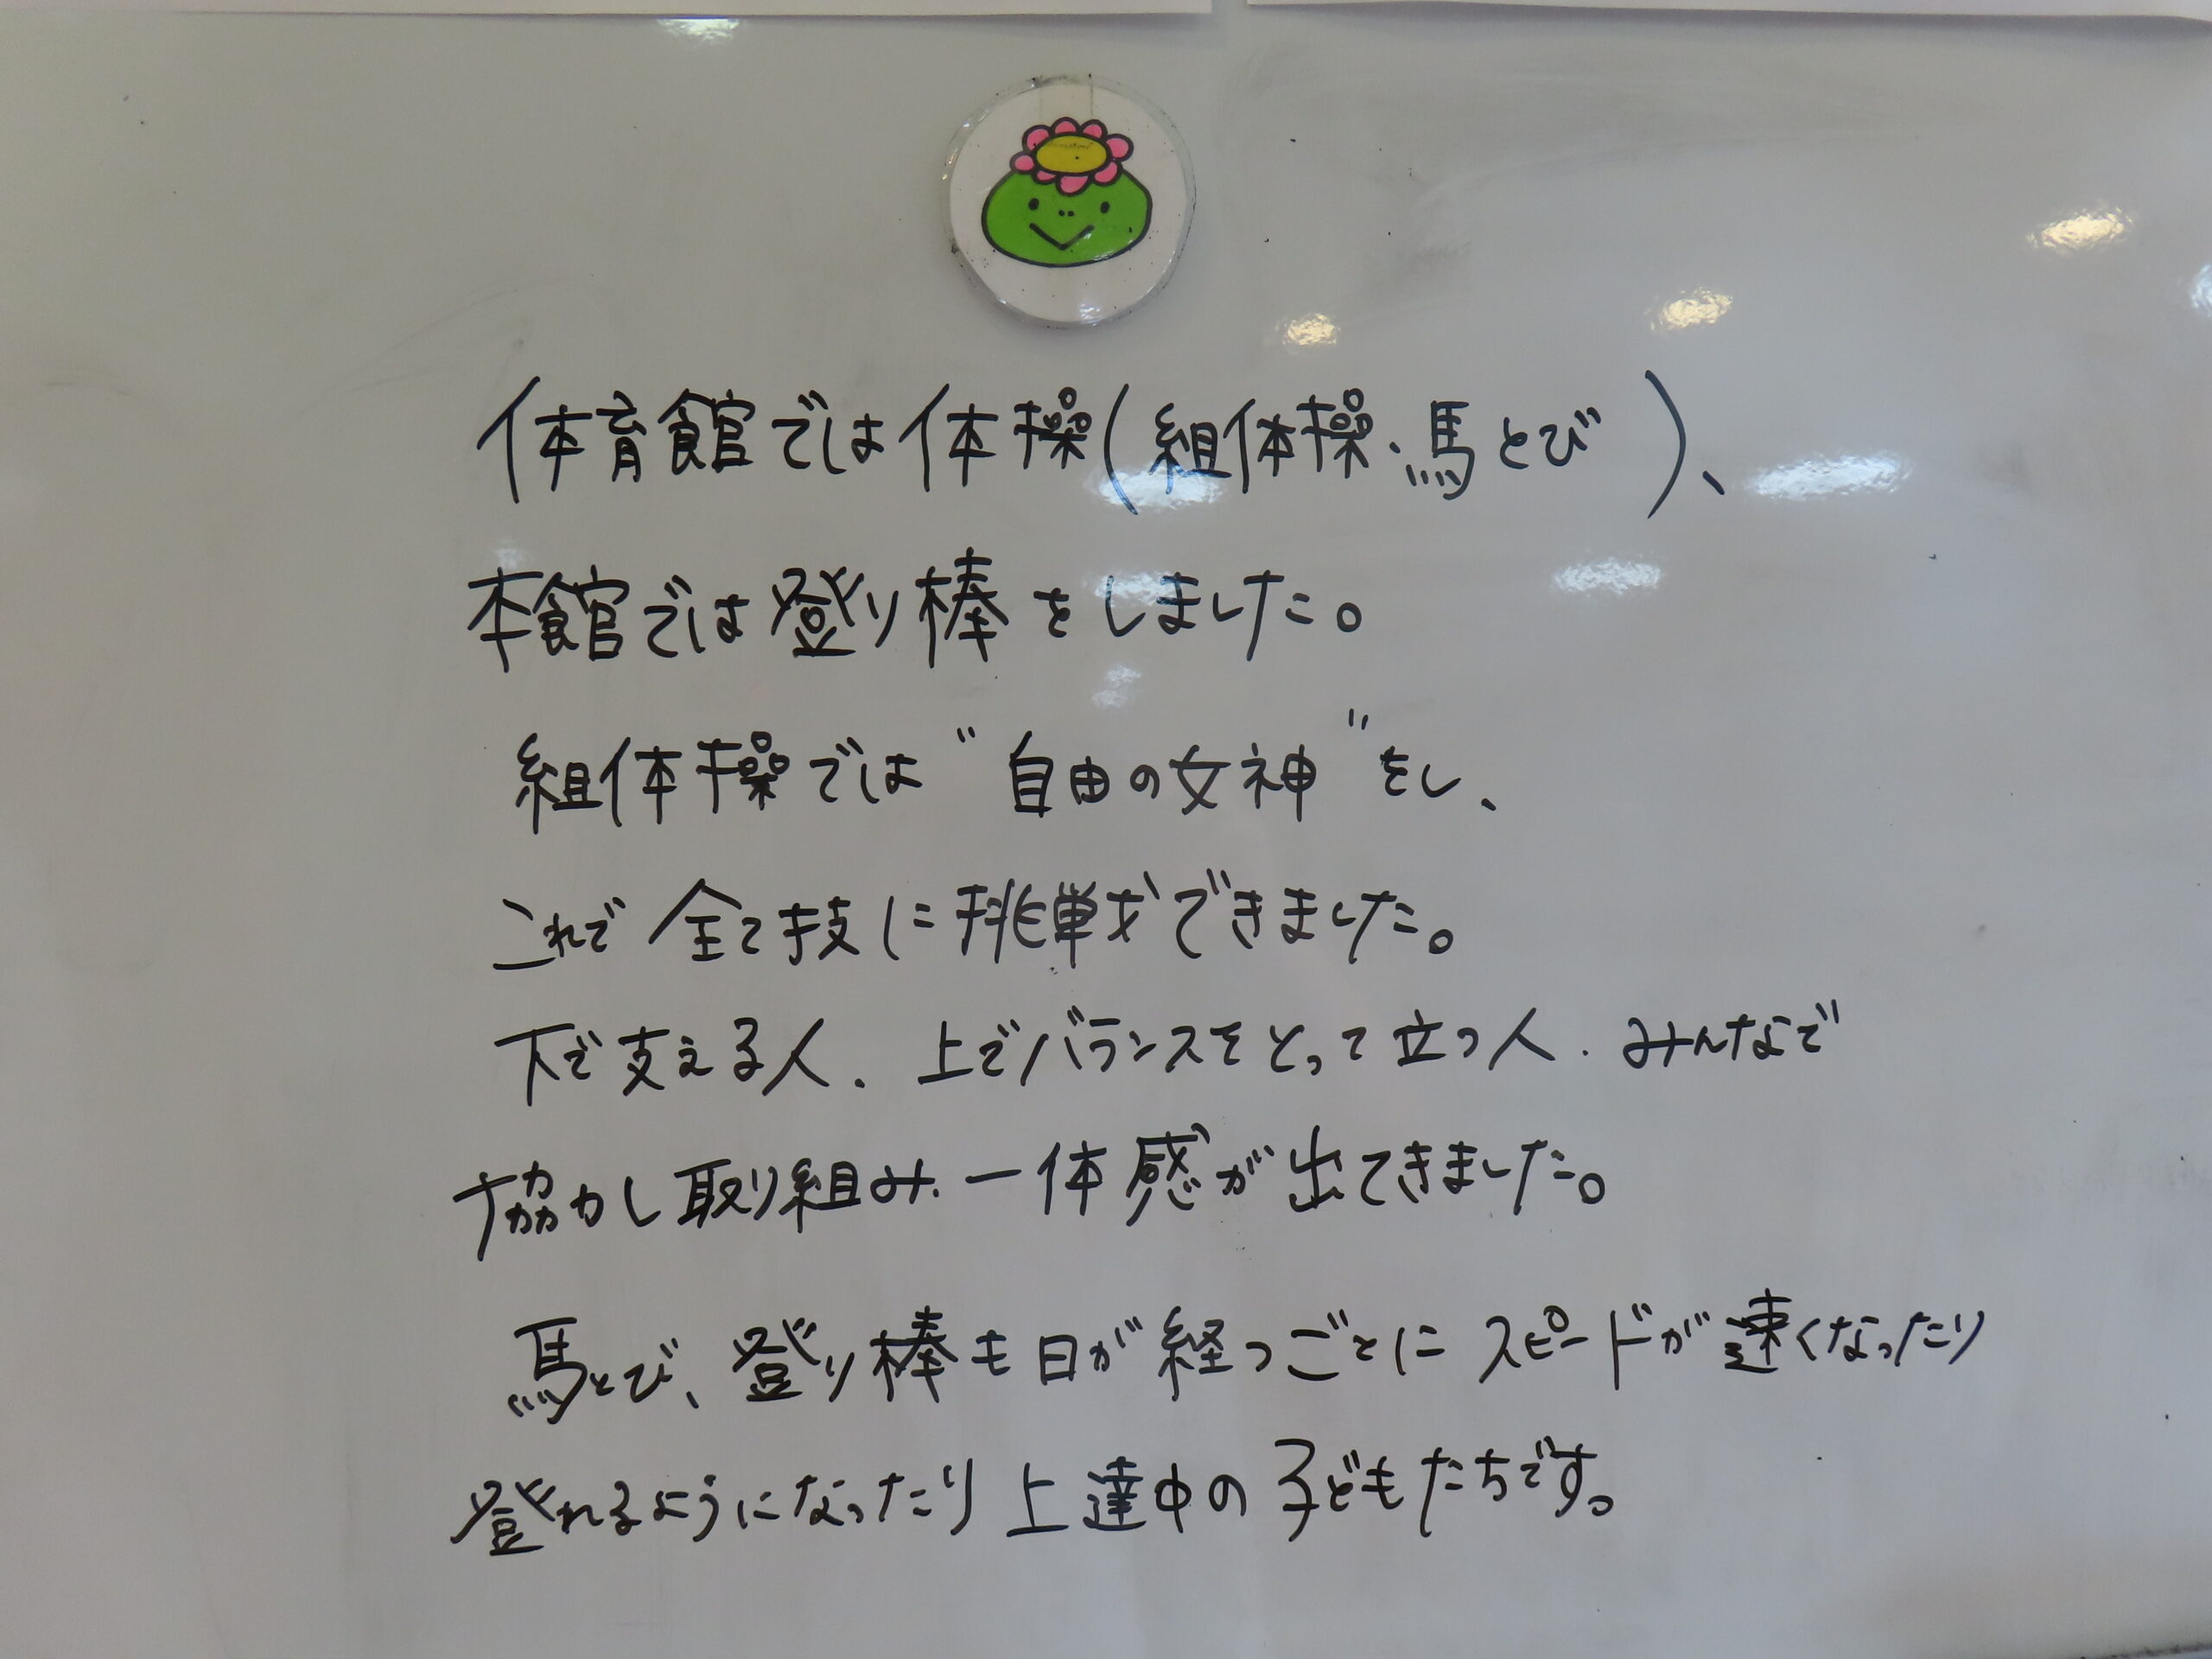 体育館では体操(組体操・馬とび)、
本館では登り棒をしました。
組体操では"自由の女神"をし、
これで全て技に挑戦できました。
下で支える人、上でバランスをとって立つ人、みんなで
協力し取り組み、一体感が出てきました。
馬とび、登り棒も日が経つごとにスピードが速くなったり
登れるようになったり上達中の子どもたちです。